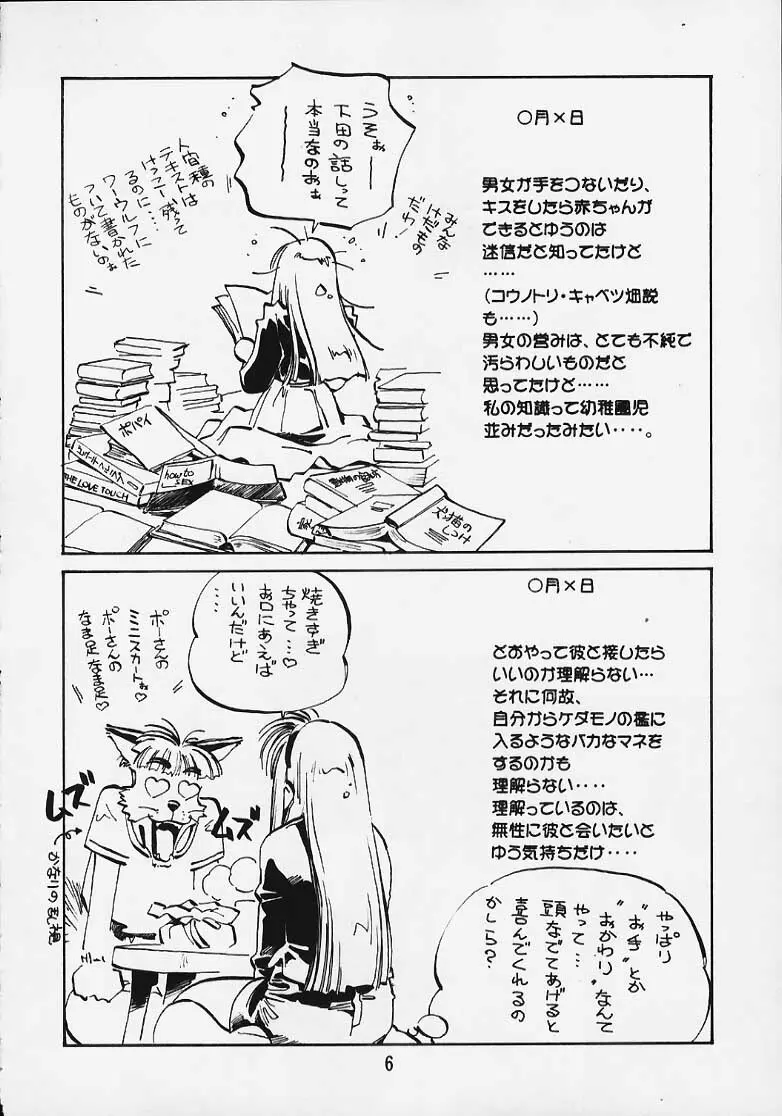 ○月×日
男女が手をつないだり、
キスをしたら赤ちゃんが
できるとゆうのは
迷信だと知ってたけど
……
(コウノトリ・キャベツ畑説
も……)
男女の営みは、とても不純で
汚らわしいものだと
思ってたけど……
私の知識って幼稚園児
並みだったみたい‥‥。
うそぉ
──
下田の話しって
本当なのぉぉ
──
みんな
けだもの
だわ!
テキストは
けっこー残って
るのに……
ワーウルフに
ついて書かれた
ものがないのぉ
ポパイ
how to
SEX
THE LOVE TOUCH
犬猫の
しつけ
○月×日
どおやって彼と接したら
いいのか理解らない…
それに何故、
自分からケダモノの檻に
入るようなバカなマネを
するのかも
理解らない‥‥
理解っているのは、
無性に彼と会いたいと
ゆう気持ちだけ‥‥
焼きすぎ
ちゃって…♡
お口にあえば
いいんだけど
……
ポーさんの
ミニスカートぉ♡
ポーさんの
なま足なま足♡
ムズ
ムズ
かなりの乱視
やっぱり
〝お手〟とか
〝おかわり〟なんて
やって…
頭なでてあげると
喜んでくれるの
かしら?
6